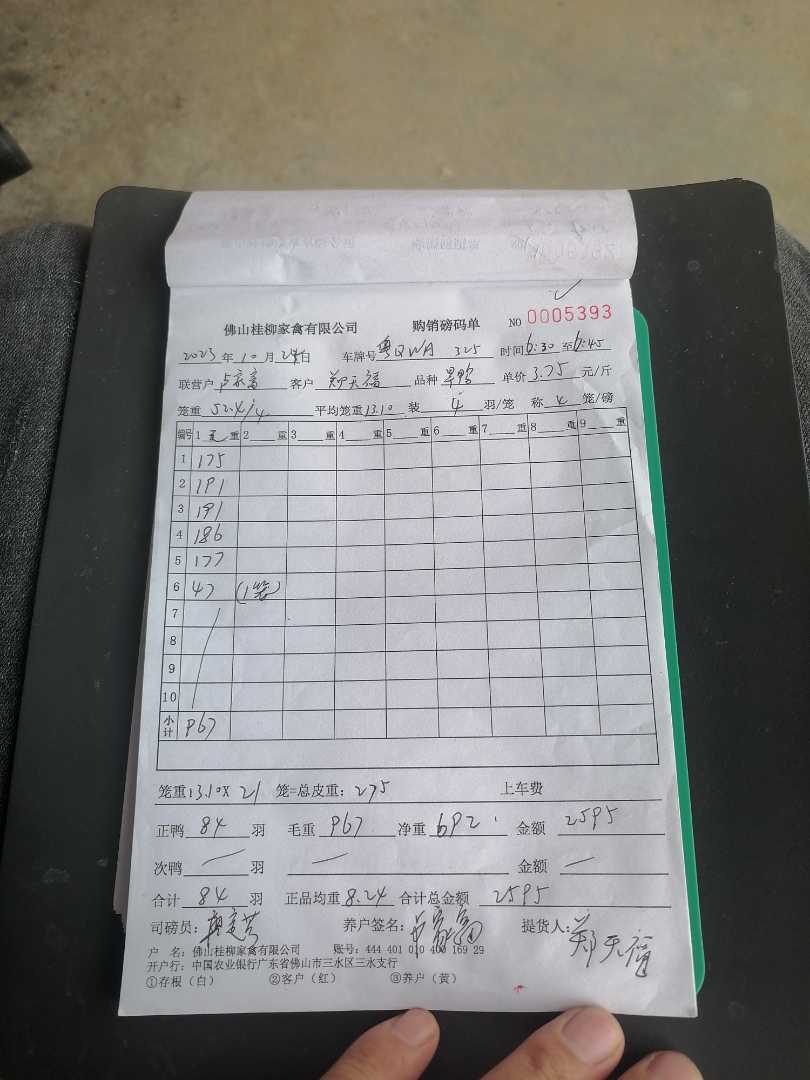 佛山桂柳家禽有限公司 购销磅码单 NO 0005393
2023 年 10 月 24 日 车牌号 粤QWA 325 时间 6:30 至 6:45
联营户 卢家富 客户 郑天福 品种 旱鸭 单价 3.75 元/斤
笼重 52.4/4 平均笼重 13.10 装 4 羽/笼 称 4 笼/磅
编号 1 毛 重 2 重 3 重 4 重 5 重 6 重 7 重 8 重 9 重
1 175
2 191
3 191
4 186
5 177
6 47 (1笼)
7
8
9
10
小计 967
笼重 13.10 X 21 笼=总皮重: 275 上车费
正鸭 84 羽 毛重 967 净重 692 金额 2595
次鸭 — 羽 — 金额 —
合计 84 羽 正品均重 8.24 合计总金额 2595
司磅员: 养户签名: 卢家富 提货人: 郑天福
户 名: 佛山桂柳家禽有限公司 账号: 444 401 010 400 169 29
开户行: 中国农业银行广东省佛山市三水区三水支行
①存根(白) ②客户(红) ③养户(黄)